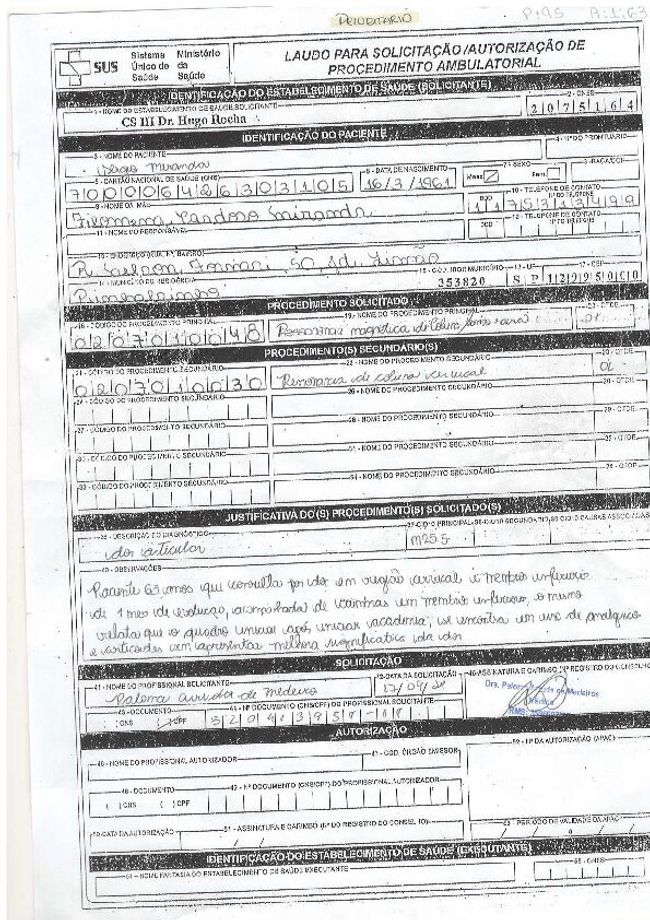 PRIORITARIO
P:95 A:1:63
SUS Sistema Único de Saúde Ministério da Saúde
LAUDO PARA SOLICITAÇÃO/AUTORIZAÇÃO DE PROCEDIMENTO AMBULATORIAL
IDENTIFICAÇÃO DO ESTABELECIMENTO DE SAÚDE (SOLICITANTE)
1 - NOME DO ESTABELECIMENTO DE SAÚDE SOLICITANTE
2 - CNES
CS III Dr. Hugo Rocha
2075164
IDENTIFICAÇÃO DO PACIENTE
3 - NOME DO PACIENTE
4 - Nº DO PRONTUÁRIO
Miranda
5 - CARTÃO NACIONAL DE SAÚDE (CNS)
6 - DATA DE NASCIMENTO
7 - SEXO
8 - RAÇA/COR
700006426303105
16/3/1961
Masc
Fem
9 - NOME DA MÃE
10 - TELEFONE DE CONTATO
Nº DO TELEFONE
Filomena Cardoso Miranda
DDD
11 - NOME DO RESPONSÁVEL
12 - TELEFONE DE CONTATO
Nº DO TELEFONE
DDD
13 - ENDEREÇO (RUA, Nº, BAIRRO)
50, Jd.
14 - MUNICÍPIO DE RESIDÊNCIA
15 - CÓD. IBGE MUNICÍPIO
16 - UF
17 - CEP
353820
SP
12995000
PROCEDIMENTO SOLICITADO
18 - CÓDIGO DO PROCEDIMENTO PRINCIPAL
19 - NOME DO PROCEDIMENTO PRINCIPAL
20 - QTDE
0207010048
Ressonancia magnética de coluna lombo sacra
01
PROCEDIMENTO(S) SECUNDÁRIO(S)
21 - CÓDIGO DO PROCEDIMENTO SECUNDÁRIO
22 - NOME DO PROCEDIMENTO SECUNDÁRIO
23 - QTDE
0207010030
de coluna cervical
01
24 - CÓDIGO DO PROCEDIMENTO SECUNDÁRIO
25 - NOME DO PROCEDIMENTO SECUNDÁRIO
26 - QTDE
27 - CÓDIGO DO PROCEDIMENTO SECUNDÁRIO
28 - NOME DO PROCEDIMENTO SECUNDÁRIO
29 - QTDE
30 - CÓDIGO DO PROCEDIMENTO SECUNDÁRIO
31 - NOME DO PROCEDIMENTO SECUNDÁRIO
32 - QTDE
33 - CÓDIGO DO PROCEDIMENTO SECUNDÁRIO
34 - NOME DO PROCEDIMENTO SECUNDÁRIO
35 - QTDE
JUSTIFICATIVA DO(S) PROCEDIMENTO(S) SOLICITADO(S)
36 - DESCRIÇÃO DO DIAGNÓSTICO
37 - CID 10 PRINCIPAL
38 - CID 10 SECUNDÁRIO
39 - CID 10 CAUSAS ASSOCIADAS
dor articular
M255
40 - OBSERVAÇÕES
Paciente 63 anos que consulta por dor em região cervical e membro inferior
de 1 mes de evolução, acompanhada de caimbras em membro inferior, o mesmo
relata que o quadro iniciar após iniciar academia, se encontra em uso de analgesico
e corticoides sem apresentar melhora significativa da dor
SOLICITAÇÃO
41 - NOME DO PROFISSIONAL SOLICITANTE
42 - DATA DA SOLICITAÇÃO
45 - ASSINATURA E CARIMBO (Nº REGISTRO DO CONSELHO)
Paloma Arruda de Medeiros
17/09/24
Dra. Paloma Arruda de Medeiros
Médica
RMS
43 - DOCUMENTO
44 - Nº DOCUMENTO (CNS/CPF) DO PROFISSIONAL SOLICITANTE
( ) CNS
CPF
AUTORIZAÇÃO
46 - NOME DO PROFISSIONAL AUTORIZADOR
47 - COD. ÓRGÃO EMISSOR
52 - Nº DA AUTORIZAÇÃO (APAC)
48 - DOCUMENTO
49 - Nº DOCUMENTO (CNS/CPF) DO PROFISSIONAL AUTORIZADOR
( ) CNS ( ) CPF
50 - DATA DA AUTORIZAÇÃO
51 - ASSINATURA E CARIMBO (Nº DO REGISTRO DO CONSELHO)
53 - PERÍODO DE VALIDADE DA APAC
IDENTIFICAÇÃO DO ESTABELECIMENTO DE SAÚDE (EXECUTANTE)
54 - NOME FANTASIA DO ESTABELECIMENTO DE SAÚDE EXECUTANTE
55 - CNES